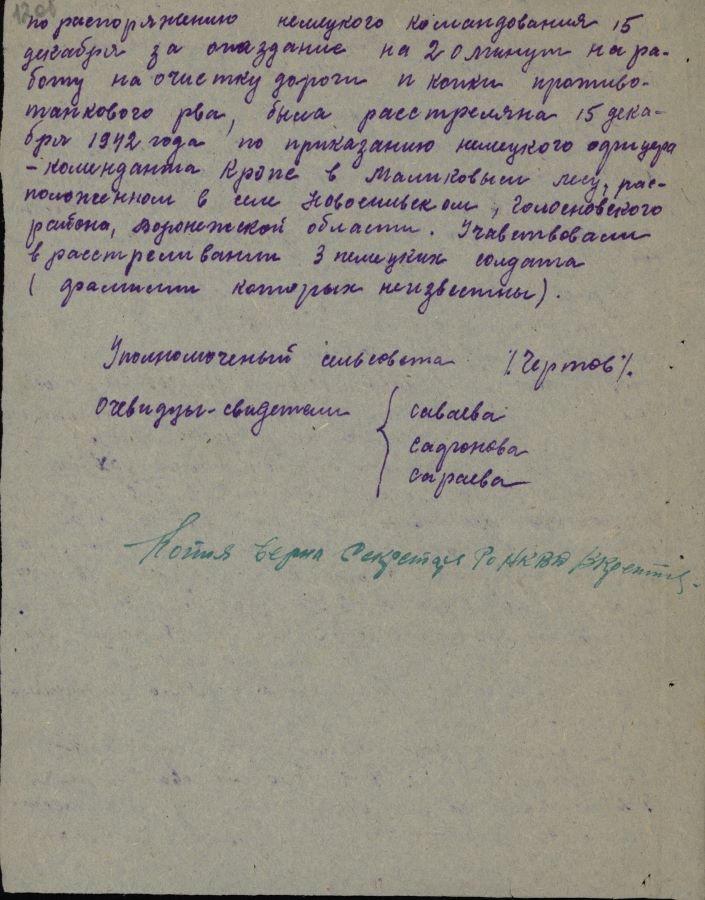 по распоряжению немецкого командования 15
декабря за опаздание на 20 минут на ра-
боту на очистку дороги и копки противо-
танкового рва, была расстреляна 15 дека-
бря 1942 года по приказанию немецкого офицера
-коменданта Крапе в Маликовым лесу, рас-
положенном в селе Новосильском, Голосновского
района, Воронежской области. Учавствовали
в расстреливании 3 немецких солдата
(фамилии которых неизвестны).
Уполномоченный сельсовета /Чертов/.
Очевидцы-свидетели { Саваева
Сафонова
Сараева
Копия верна Секретарь РО НКВД